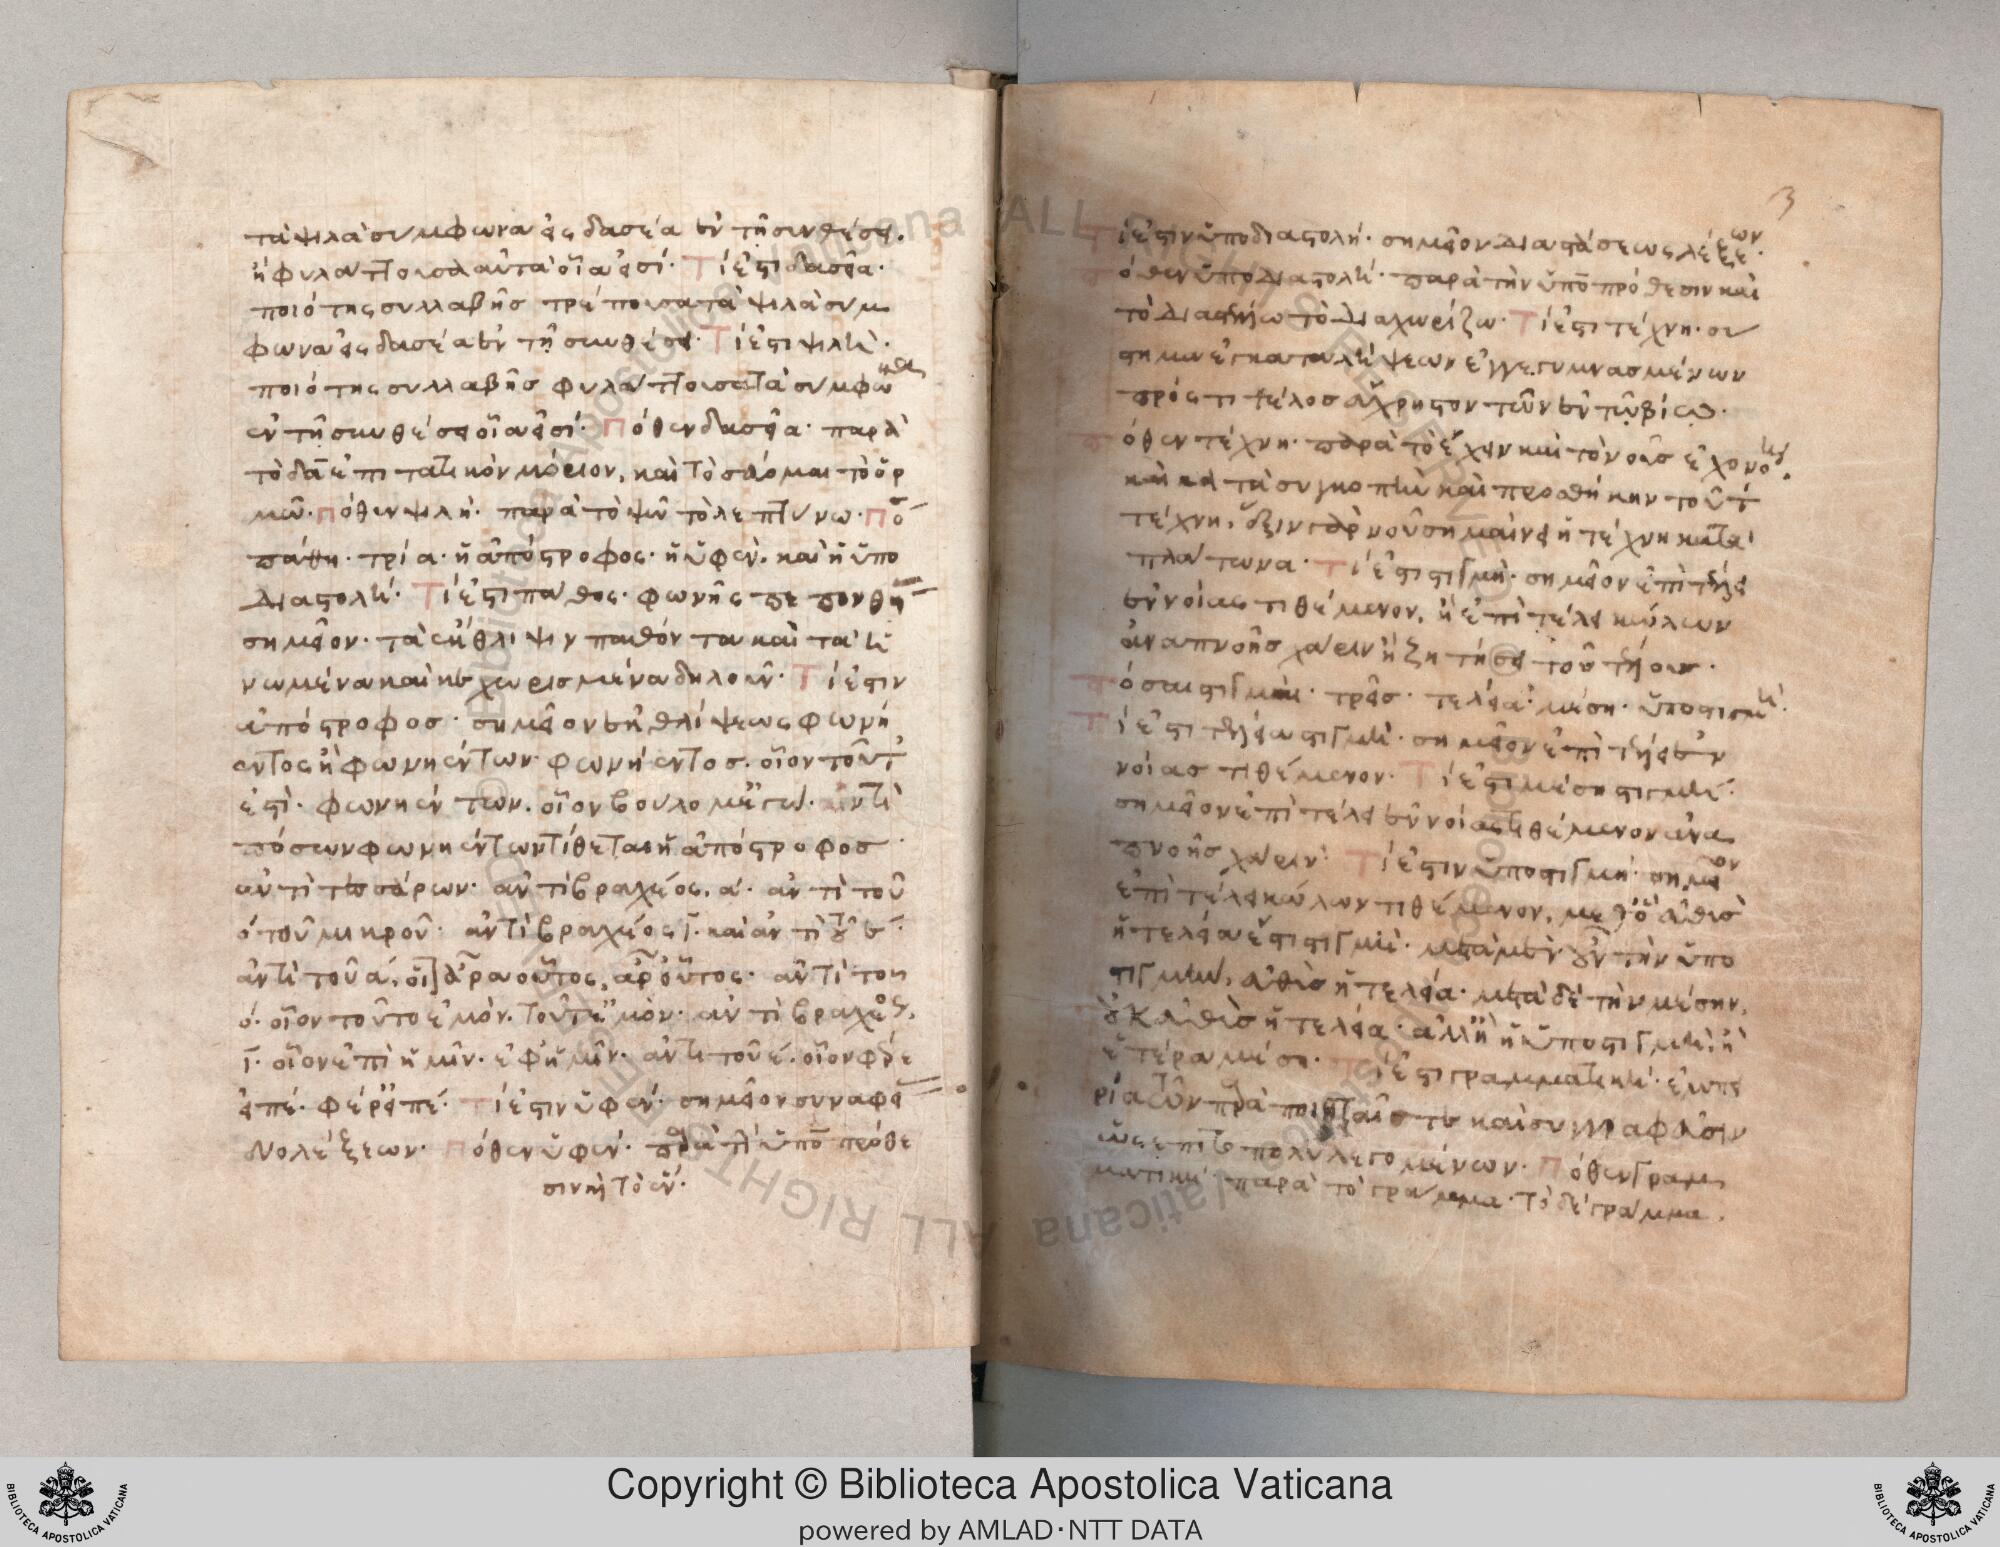 τὰ ψιλὰ σύμφωνα εἰς δασέα ἐν τῇ συνθέσει.
ἢ φυλάττουσα αὐτὰ οἷα εἰσί· Τί ἐστι δασεῖα·
ποιότης συλλαβῆς τρέπουσα τὰ ψιλὰ σύμ
φωνα εἰς δασέα ἐν τῇ συνθέσει· Τί ἐστι ψιλή·
ποιότης συλλαβῆς φυλάττουσα τὰ σύμφωνα
ἐν τῇ συνθέσει οἷα εἰσί· Πόθεν δασεῖα· παρὰ
τὸ δα ἐπιτατικὸν μόριον, καὶ τὸ
μῶ· πόθεν ψιλή· παρὰ τὸ ψῶ τὸ λεπτύνω· πόσα
πάθη· τρία· ἡ ἀπόστροφος· ἡ ὑφέν, καὶ ἡ ὑπο
διαστολή· Τί ἐστι πάθος· φωνῆς
σημεῖον· τὰ ἔκθλιψιν παθόντα καὶ τὰ
νωμένα καὶ κεχωρισμένα δηλοῦν· Τί ἐστιν
ἀπόστροφος· σημεῖον ἐκθλίψεως φωνή
εντος ἢ φωνηέντων· φωνήεντος. οἷον τοῦτ
ἐστί· φωνηέντων. οἷον βούλομ' ἐγώ. ἀντὶ
πόσων φωνηέντων τίθεται ἡ ἀπόστροφος
ἀντὶ τεσσάρων· ἀντὶ βραχέος α· ἀντὶ τοῦ
ο τοῦ μικροῦ· ἀντὶ βραχέος ι· καὶ ἀντὶ τοῦ ε·
ἀντὶ τοῦ α, οἷον ἄρα οὗτος, ἆρ' οὗτος· ἀντὶ του
ο· οἷον τοῦτο ἐμόν. τοῦτ' ἐμόν· ἀντὶ βραχέος
ι· οἷον ἐπὶ ἡμῖν· ἐφ' ἡμῖν· ἀντὶ τοῦ ε. οἷον φέρε
εἰπέ· φέρ' εἰπέ· Τί ἐστιν ὑφέν· σημεῖον συναφεί
δύο λέξεων· Πόθεν ὑφέν· παρὰ τὴν ὑπὸ πρόθε
σιν καὶ τὸ ἕν·
3
Τί ἐστιν ὑποδιαστολή· σημεῖον διαστάσεως λέξεων
Πόθεν ὑποδιαστολή· παρὰ τὴν ὑπὸ πρόθεσιν καὶ
τὸ διαστέλλω τὸ διαχωρίζω· Τί ἐστι τέχνη· σύ
στημα ἐγκαταλήψεων ἐγγεγυμνασμένων
πρός τι τέλος εὔχρηστον τῶν ἐν τῷ βίῳ·
Πόθεν τέχνη· παρὰ τὸ ἔχειν καὶ τὸν νοῦς ἐχονοη
καὶ κατὰ συγκοπὴν καὶ προσθήκην τοῦ τ
τέχνη, ἕξιν γὰρ νοῦ σημαίνει ἡ τέχνη κατὰ
πλάτωνα· Τί ἐστι στιγμή· σημεῖον ἐπὶ τέλει
ἐννοίας τιθέμενον, ἢ ἐπὶ τέλει κώλων
ἀναπνοῆς χάριν ἢ
Πόσαι στιγμαί· τρεῖς· τελεία· μέση· ὑποστιγμή·
Τί ἐστι τελεία στιγμή· σημεῖον ἐπὶ τέλει ἐν
νοίας τιθέμενον· Τί ἐστι μέση στιγμή·
σημεῖον ἐπὶ τέλει ἐννοίας τιθέμενον ἀνα
πνοῆς χάριν· Τί ἐστιν ὑποστιγμή· σημεῖον
ἐπὶ τέλει κώλων τιθέμενον, μεθ' ὃ εὐθὺς
ἡ τελεία ἔστι στιγμή· μετὰ μὲν οὖν τὴν ὑπο
στιγμὴν, εὐθὺς ἡ τελεία· μετὰ δὲ τὴν μέσην,
οὐκ εὐθὺς ἡ τελεία· ἀλλ' ἢ ἡ ὑποστιγμή, ἢ
ἑτέρα μέση· Τί ἐστι γραμματική· ἐμπει
ρία τῶν παρὰ ποιηταῖς τε καὶ συγγραφεῦσιν
ὡς ἐπὶ τὸ πολὺ λεγομένων· Πόθεν γραμ
ματική· παρὰ τὸ γράμμα· τὸ δὲ γράμμα
Copyright © Biblioteca Apostolica Vaticana
powered by AMLAD·NTT DATA
BIBLIOTECA APOSTOLICA VATICANA
BIBLIOTECA APOSTOLICA VATICANA